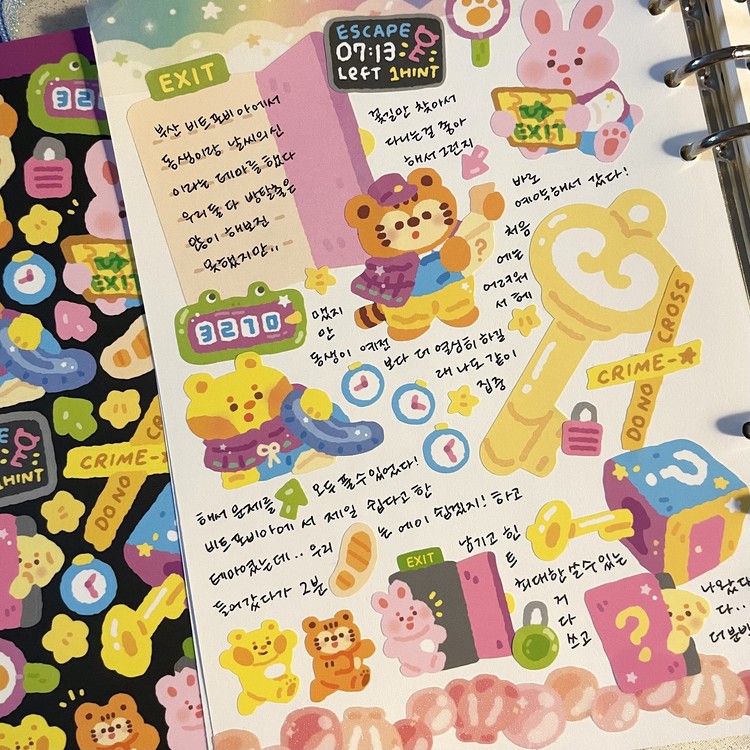 ESCAPE
07:13
LEFT 1HINT
EXIT
부산 비트포비아에서
동생이랑 날씨의신
이라는 테마를 했다
우리 둘 다 방탈출은
많이 해보진
못했지만..
꽃길만 찾아서
다니는걸 좋아
해서 그런지
EXIT
바로
예약해서 갔다!
처음
에는
어려워
서 헤
3270
맸지
만
동생이 예전
보다 더 열심히 하길
래 나도 같이
집중
CRIME-
DO NO CROSS
해서 문제를 모두 풀 수 있었다!
비트포비아에서 제일 쉽다고 한
테마였는데.. 우리는 에이 쉽겠지! 하고
들어갔다가 2분 남기고 힌
트
최대한 쓸 수 있는
거
다
쓰고
나왔다
다..
더 분발
EXIT
?
?
32
EXIT
CRIME-
DO NO CR
E
3
1HINT